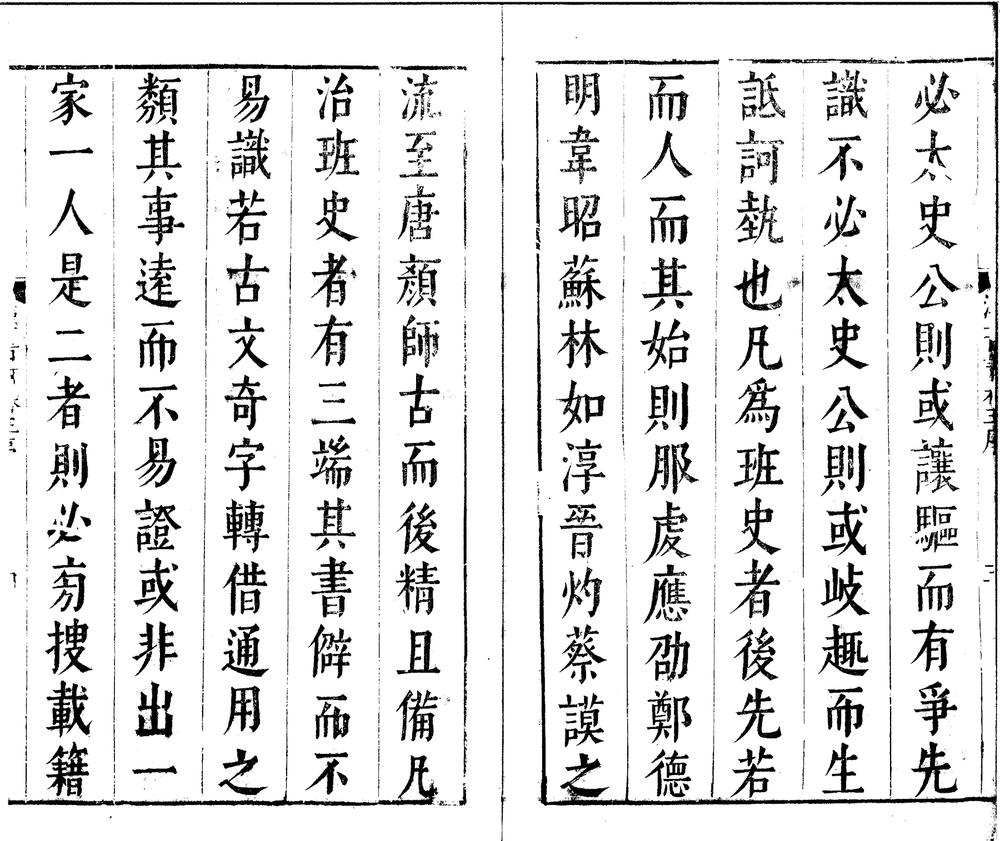 必太史公則或讓驅而有爭先
識不必太史公則或岐趣而生
詆訶埶也凡爲班史者後先若
而人而其始則服虔應劭鄭德
明韋昭蘇林如淳晉灼蔡謨之
流至唐顏師古而後精且備凡
治班史者有三端其書僻而不
易識若古文奇字轉借通用之
類其事遠而不易證或非出一
家一人是二者則必旁搜載籍